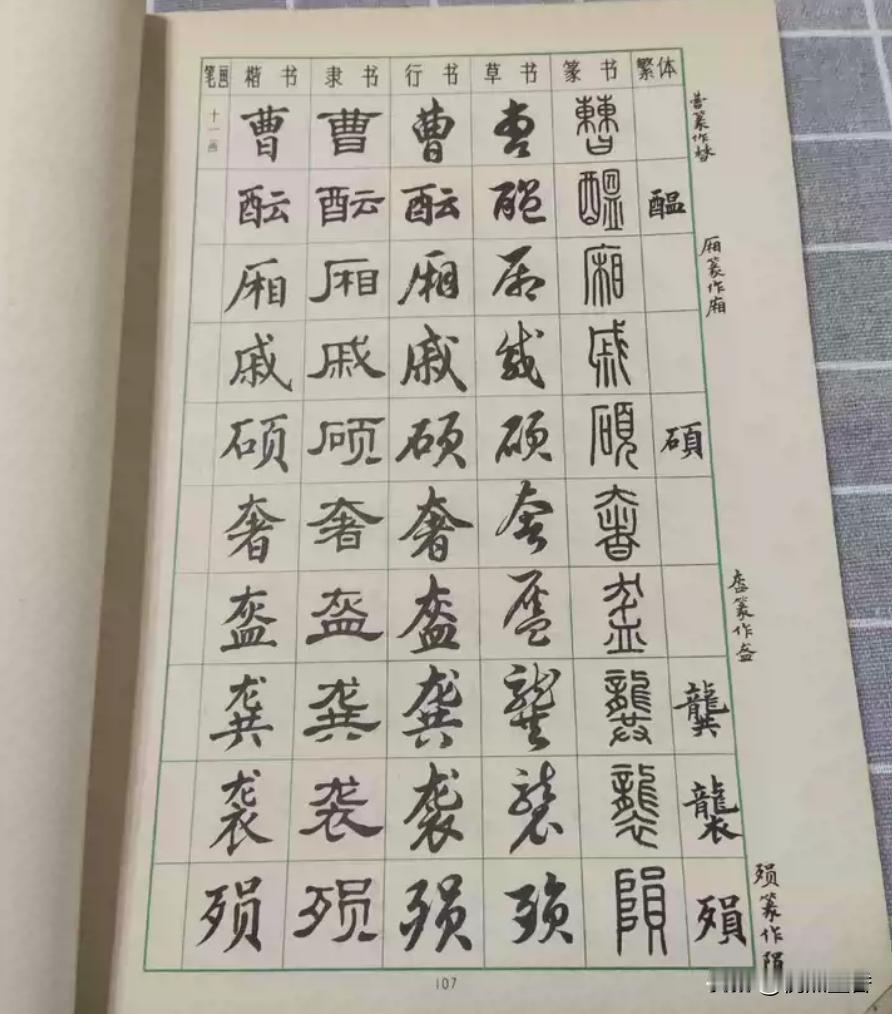 笔画 楷书 隶书 行书 草书 篆书 繁体
十一画 曹 曹 曹 曹 曹
酝 酝 酝 醖 醖 醖
厢 厢 厢 厢 廂
戚 戚 戚 戚 戚
硕 硕 硕 硕 碩 碩
奢 奢 奢 奢 奢
盔 盔 盔 盔 盔
龚 龚 龚 龔 龔 龔
袭 袭 袭 襲 襲 襲
殒 殒 殒 殒 隕 殞
篆作
厢篆作廂
盔篆作
殒篆作隕
107